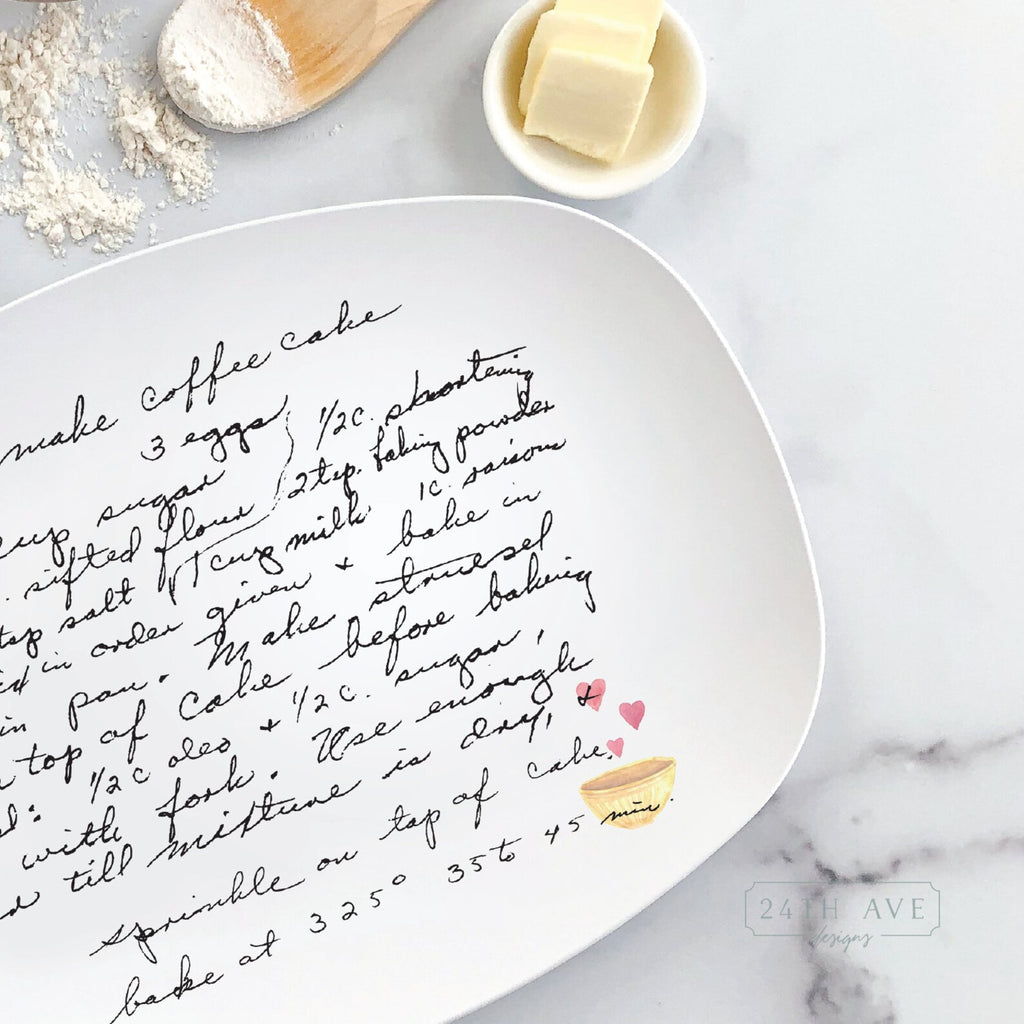 make coffee cake
3 eggs
1/2 c. shortening
sugar
2 tsp. baking powder
sifted flour
1 c. raisins
salt
1 cup milk
in order given + bake in
in pan. Make struesel
top of cake before baking
1/2 c oleo + 1/2 c. sugar,
with fork. Use enough
till mixture is dry, +
sprinkle on top of cake.
bake at 325° 35 to 45 min.
24TH AVE
designs